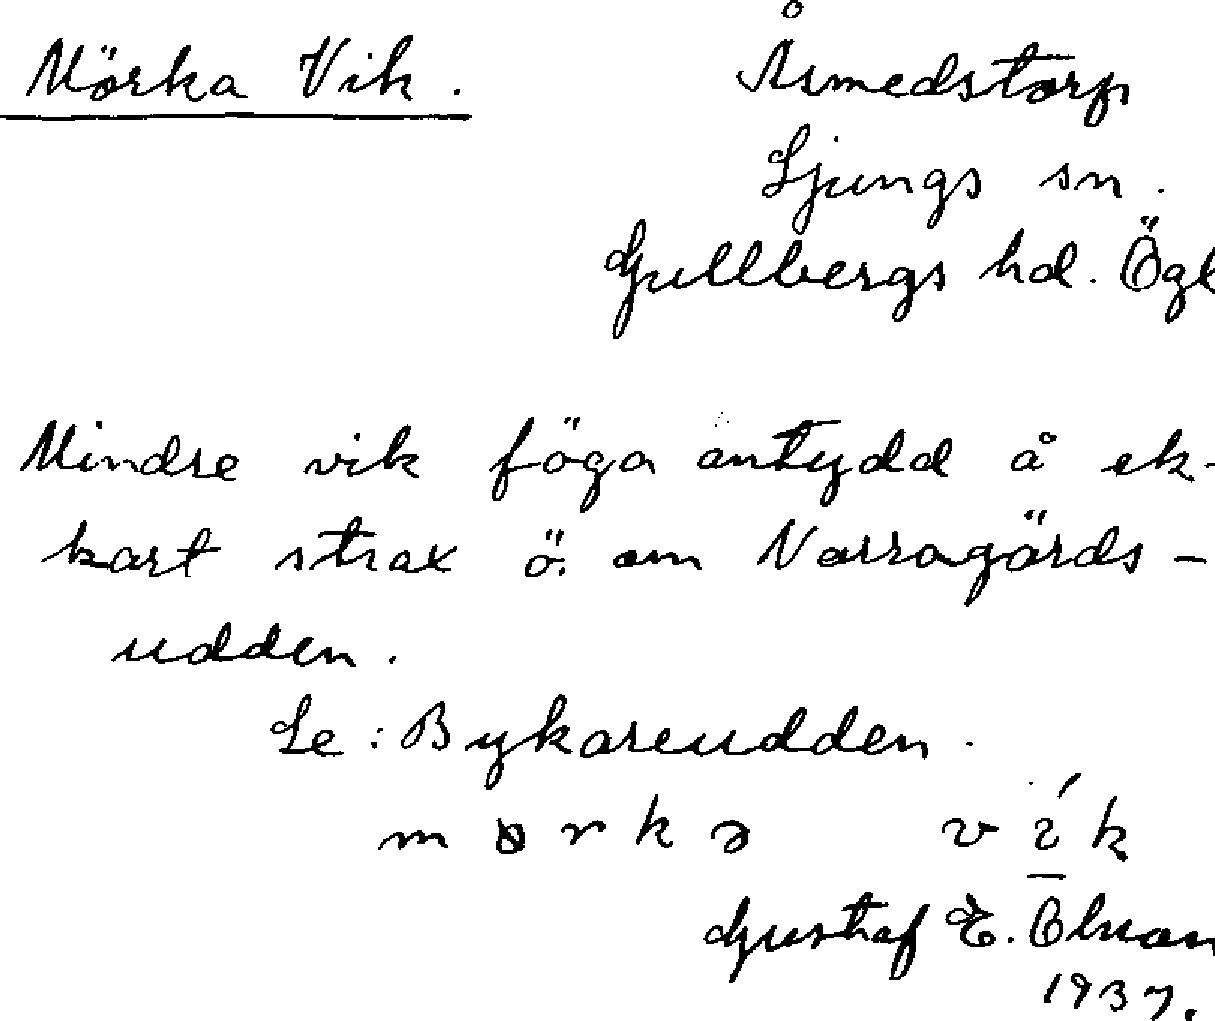 Mörka Vik.
Åsmedstorp
Ljungs sn.
Gullbergs hd. Ögl
Mindre vik föga antydd å ek-
kart strax ö. om Norragårds-
udden.
Se: Bykareudden.
mørkə vík
Gustaf E. Olsson
1937.